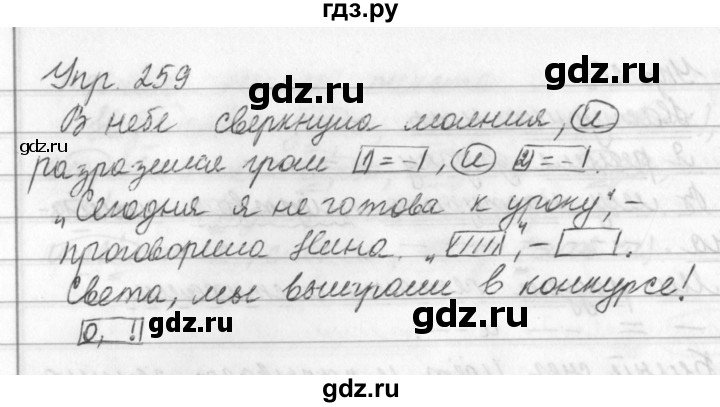 гдз.ру
Упр. 259
gdz.ru
gdz.ru
В небе сверкнула молния, и
gdz.ru
разразился гром [1) = - ], и [2) = - ].
„Сегодня я не готова к уроку“, –
проговорила Нина. „[////]“, – [ ].
Света, мы выиграли в конкурсе!
gdz.ru
gdz.ru
[О, !]
gdz.ru